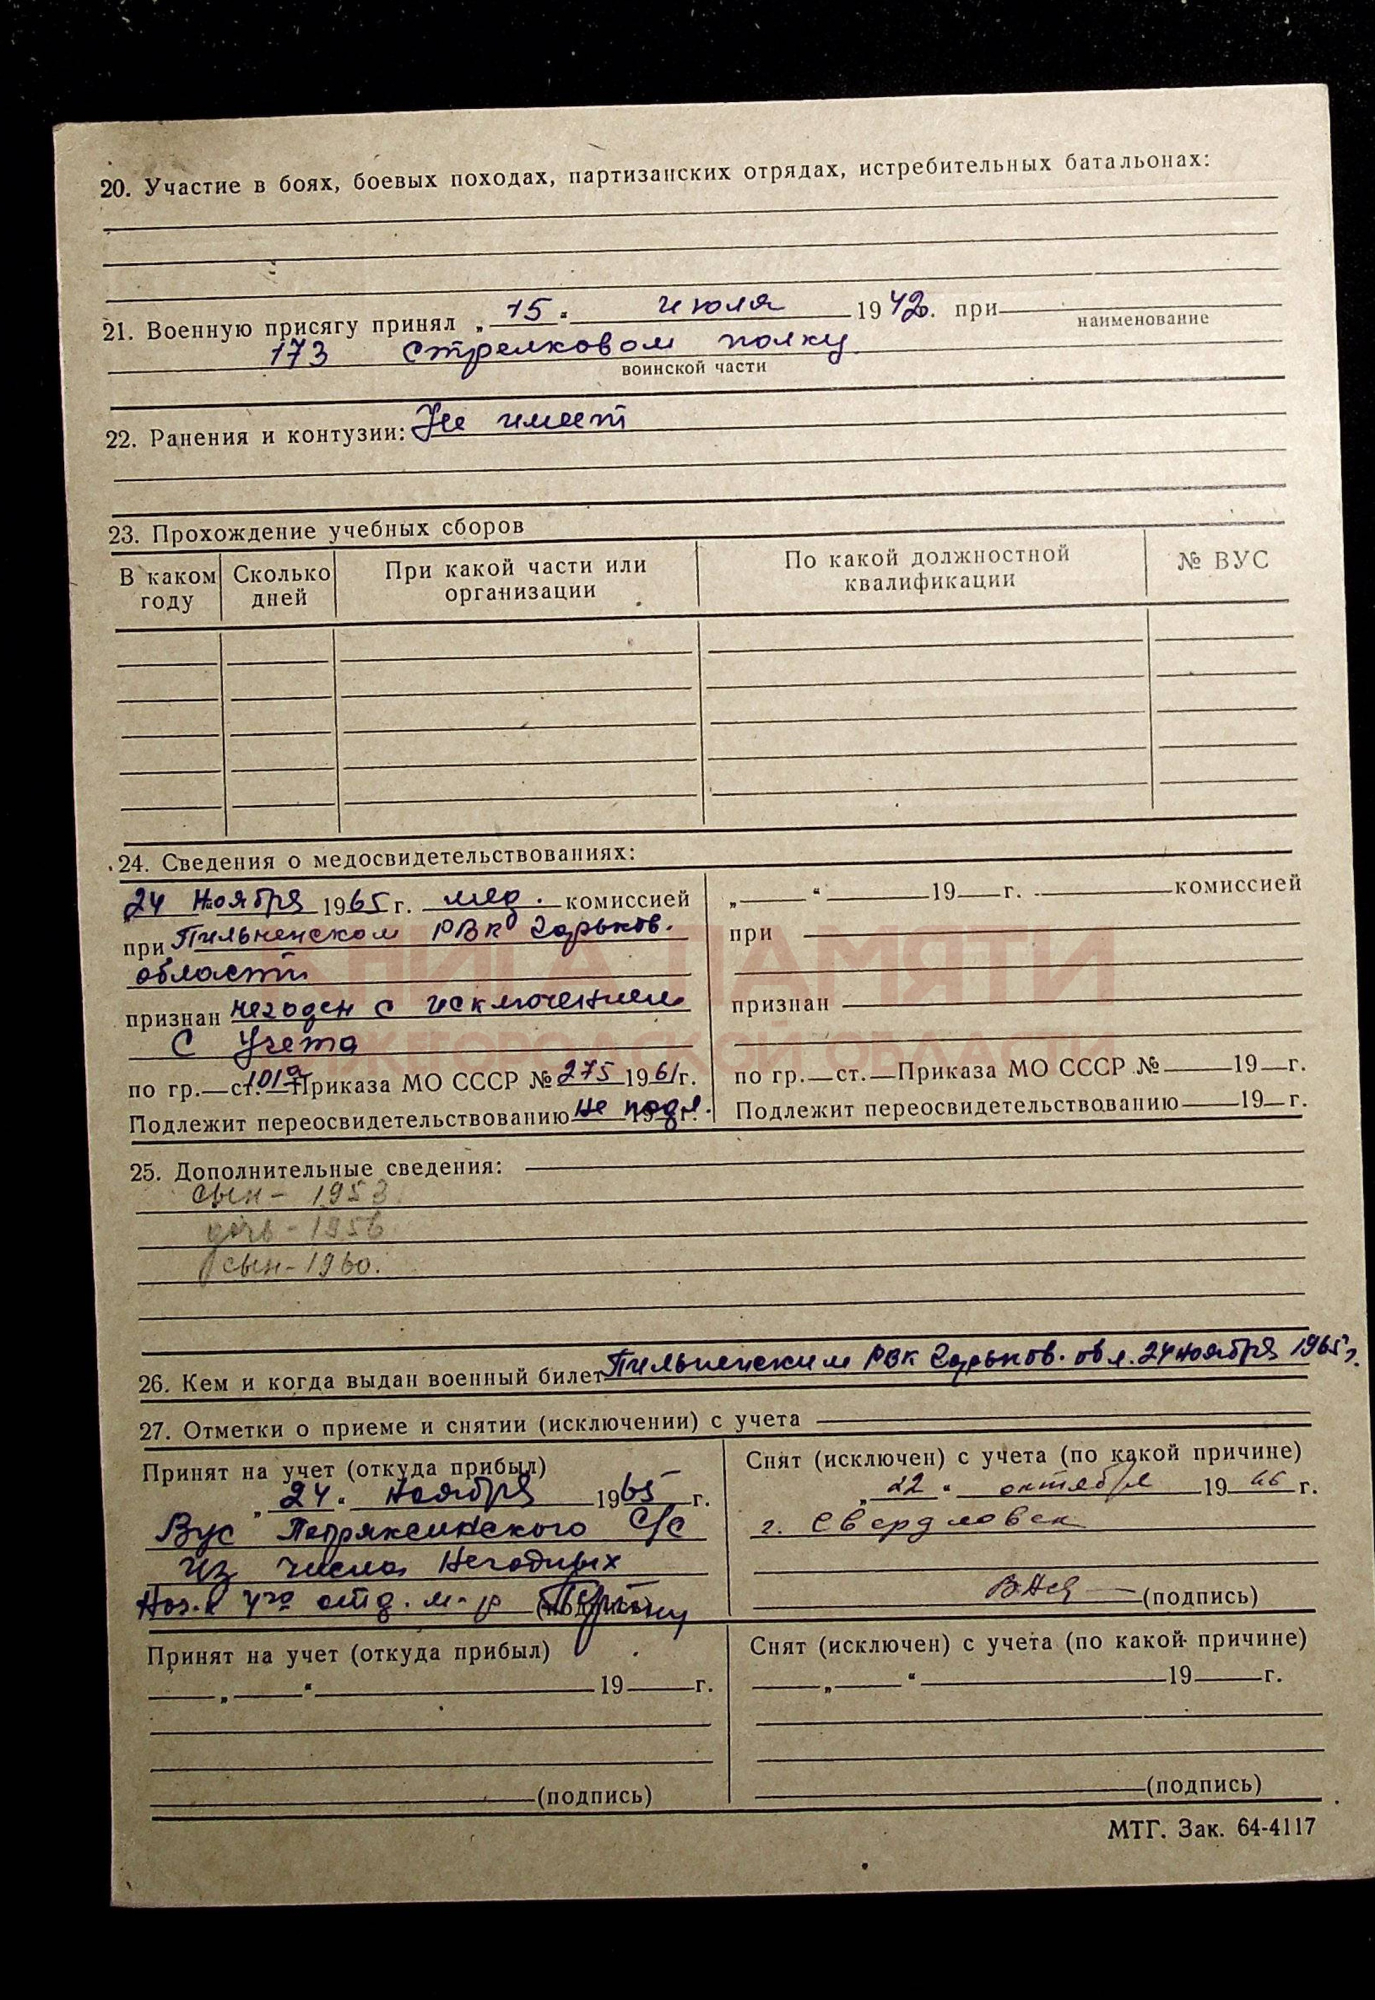 20. Участие в боях, боевых походах, партизанских отрядах, истребительных батальонах:
21. Военную присягу принял „ 15 “ июля 1942. при
наименование
173 стрелковом полку
воинской части
22. Ранения и контузии: Не имеет
23. Прохождение учебных сборов
В каком году Сколько дней При какой части или организации По какой должностной квалификации № ВУС
24. Сведения о медосвидетельствованиях:
24 Ноября 1965 г. мед. комиссией
при Пильненском РВК Горьков.
области
признан негоден с исключением
с учета
по гр. — ст. 101а Приказа МО СССР № 275 1961 г.
Подлежит переосвидетельствованию не подл. 19 г.
„ “ 19 г. комиссией
при
признан
по гр. — ст. — Приказа МО СССР № 19 г.
Подлежит переосвидетельствованию 19 г.
КНИГА ПАМЯТИ
НИЖЕГОРОДСКОЙ ОБЛАСТИ
25. Дополнительные сведения:
сын - 1953
дочь - 1956
сын - 1960.
26. Кем и когда выдан военный билет Пильненским РВК Горьков. обл. 24 ноября 1965 г.
27. Отметки о приеме и снятии (исключении) с учета
Принят на учет (откуда прибыл)
„ 24 “ ноября 1965 г.
Вус С/С
Из числа Негодных
Нач. 4го отд. м-р (подпись)
Снят (исключен) с учета (по какой причине)
„ 22 “ октября 1966 г.
г. Свердловск
(подпись)
Принят на учет (откуда прибыл)
„ “ 19 г.
(подпись)
Снят (исключен) с учета (по какой причине)
„ “ 19 г.
(подпись)
МТГ. Зак. 64-4117